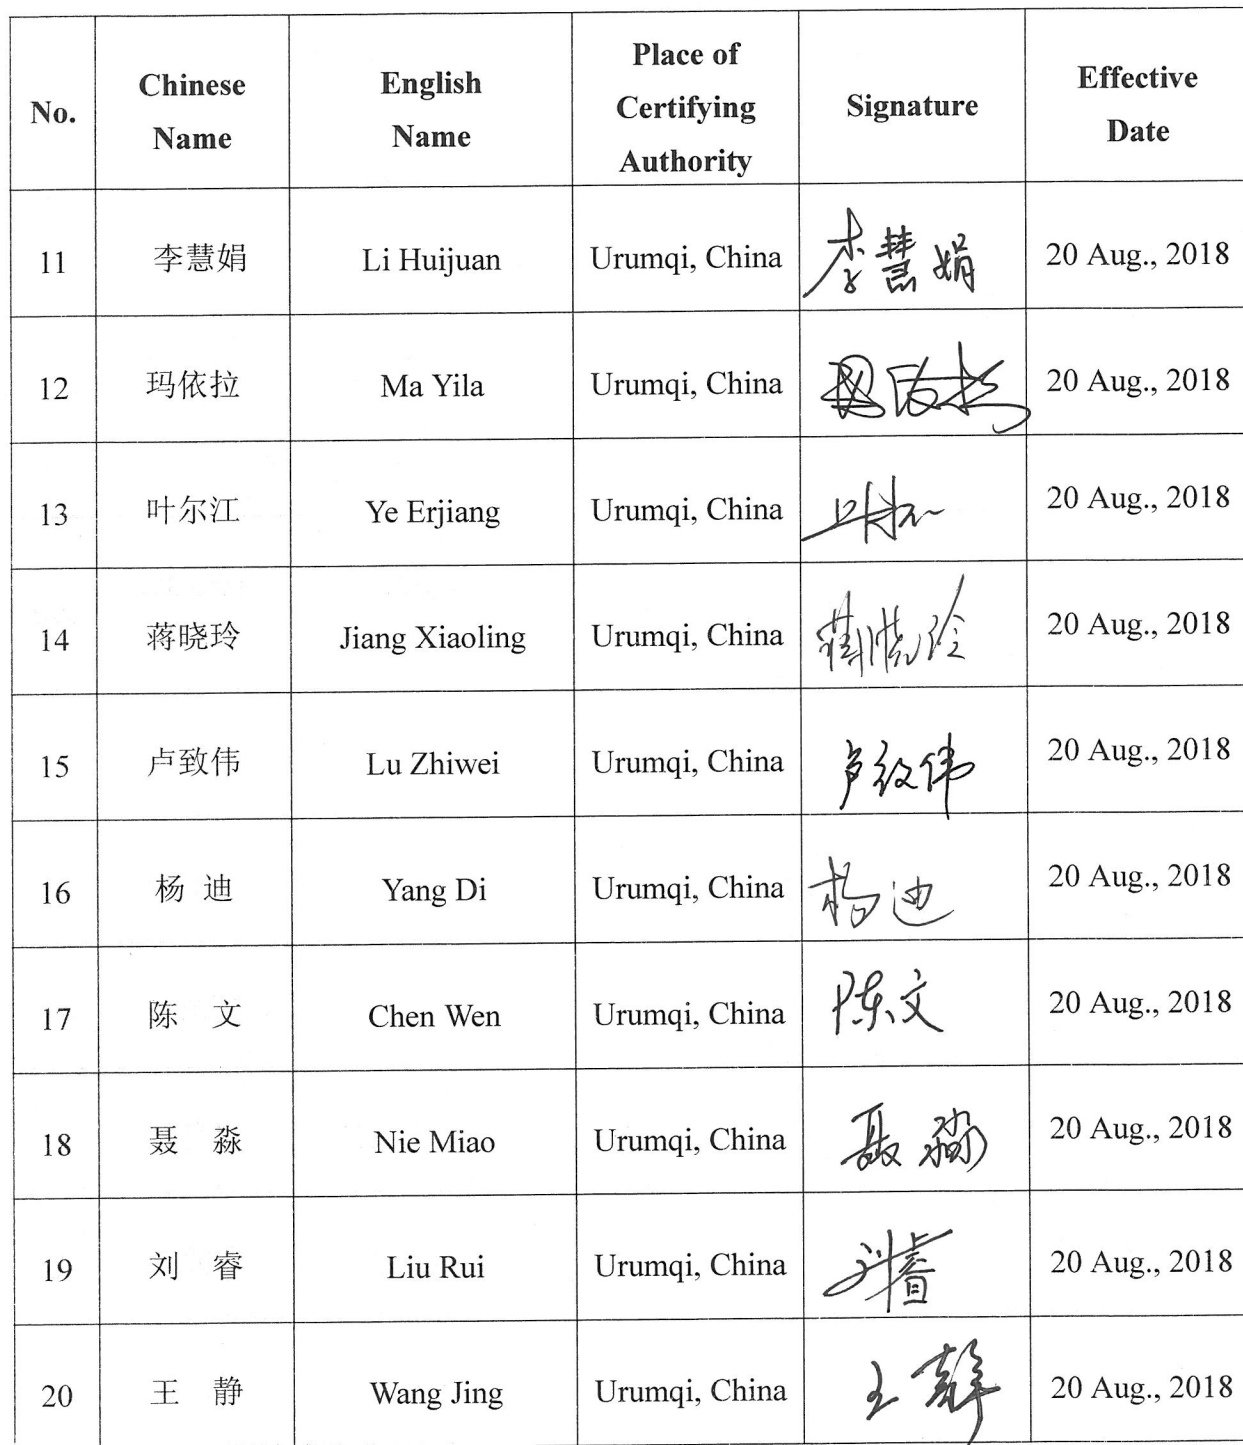 No.
Chinese Name
English Name
Place of Certifying Authority
Signature
Effective Date
11 李慧娟 Li Huijuan Urumqi, China 李慧娟 20 Aug., 2018
12 玛依拉 Ma Yila Urumqi, China 20 Aug., 2018
13 叶尔江 Ye Erjiang Urumqi, China 20 Aug., 2018
14 蒋晓玲 Jiang Xiaoling Urumqi, China 蒋晓玲 20 Aug., 2018
15 卢致伟 Lu Zhiwei Urumqi, China 卢致伟 20 Aug., 2018
16 杨 迪 Yang Di Urumqi, China 杨迪 20 Aug., 2018
17 陈 文 Chen Wen Urumqi, China 陈文 20 Aug., 2018
18 聂 淼 Nie Miao Urumqi, China 聂淼 20 Aug., 2018
19 刘 睿 Liu Rui Urumqi, China 刘睿 20 Aug., 2018
20 王 静 Wang Jing Urumqi, China 王静 20 Aug., 2018